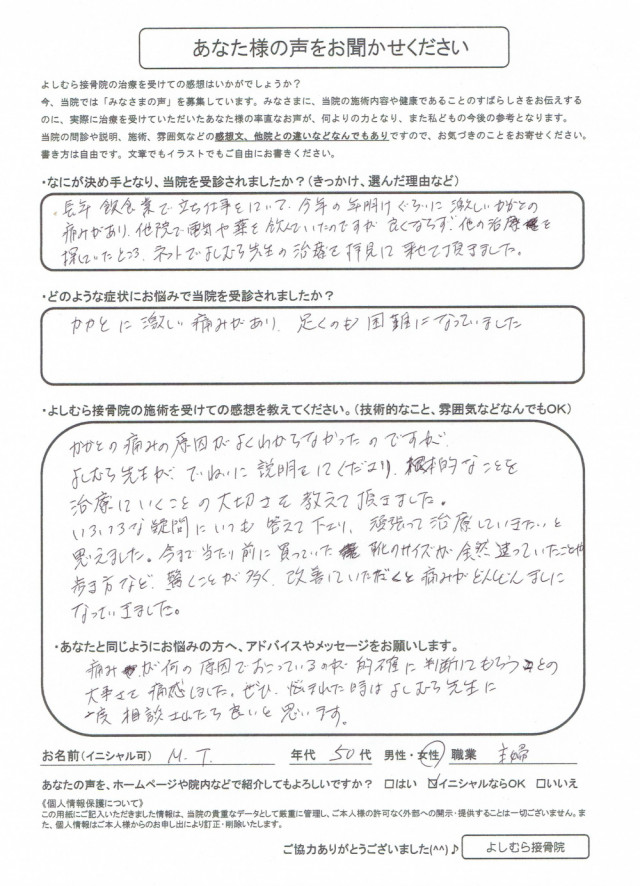 あなた様の声をお聞かせください
よしむら接骨院の治療を受けての感想はいかがでしょうか？
今、当院では「みなさまの声」を募集しています。みなさまに、当院の施術内容や健康であることのすばらしさをお伝えする
のに、実際に治療を受けていただいたあなた様の率直なお声が、何よりの力となり、また私どもの今後の参考となります。
当院の問診や説明、施術、雰囲気などの感想文、他院との違いなどなんでもありですので、お気づきのことをお寄せください。
書き方は自由です。文章でもイラストでもご自由にお書きください。
・なにが決め手となり、当院を受診されましたか？(きっかけ、選んだ理由など)
長年 飲食業で立ち仕事をしていて、今年の年明けぐらいに激しいかかとの
痛みがあり、他院で電気や薬を飲んでいたのですが良くならず、他の治療を
探していたところ、ネットでよしむら先生の治療を拝見に来て頂きました。
・どのような症状にお悩みで当院を受診されましたか？
かかとに激しい痛みがあり、足くのも困難になっていました
・よしむら接骨院の施術を受けての感想を教えてください。(技術的なこと、雰囲気などなんでもOK)
かかとの痛みの原因がよくわからなかったのですが、
よしむら先生が、ていねいに説明をしてくださり、根本的なことを
治療していくことの大切さを教えて頂きました。
いろいろな疑問にいつも答えて下さり、頑張って治療していきたいと
思えました。今まで当たり前に買っていた靴のサイズが全然違っていたことや
歩き方など、驚くことが多く、改善していただくと痛みがどんどんましに
なっていきました。
・あなたと同じようにお悩みの方へ、アドバイスやメッセージをお願いします。
痛みが何の原因でおこっているのか、的確に判断してもらうことの
大事さを痛感しました。ぜひ、悩まれた時はよしむら先生に
一度相談されたら良いと思います。
お名前(イニシャル可) M.T. 年代 50代 男性・女性 職業 主婦
あなたの声を、ホームページや院内などで紹介してもよろしいですか？ □はい ☑イニシャルならOK □いいえ
《個人情報保護について》
この用紙にご記入いただきました情報は、当院の貴重なデータとして厳重に管理し、ご本人様の許可なく外部への開示・提供することは一切ございません。ま
た、個人情報はご本人様からのお申し出により訂正・削除いたします。
ご協力ありがとうございました(^^)♪ よしむら接骨院